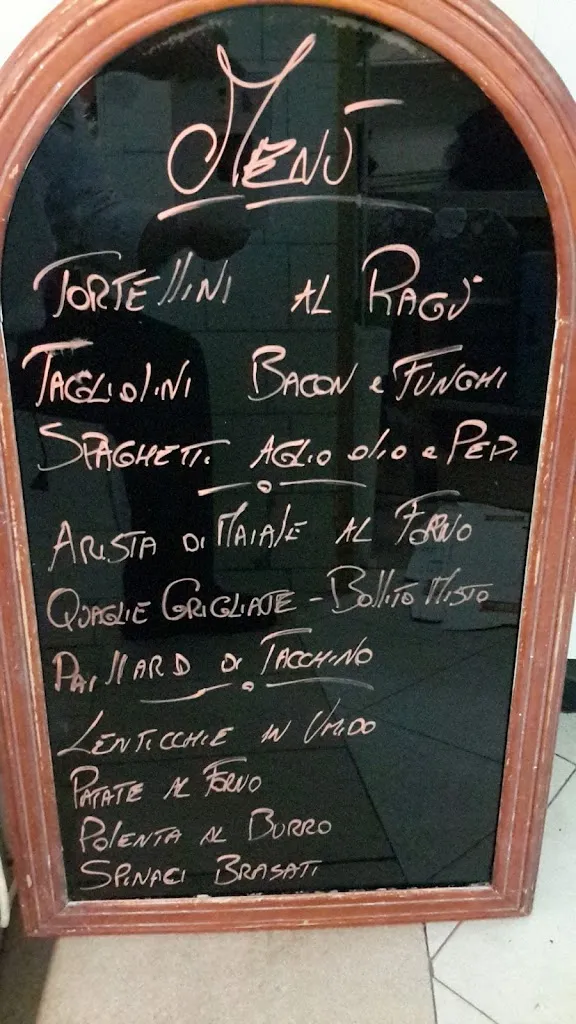 Menù
Tortellini al Ragù
Tagliolini Bacon e Funghi
Spaghetti Aglio olio e Pepi
Arista di Maiale al Forno
Quaglie Grigliate - Bollito Misto
Paillard di Tacchino
Lenticchie in Umido
Patate al Forno
Polenta al Burro
Spinaci Brasati